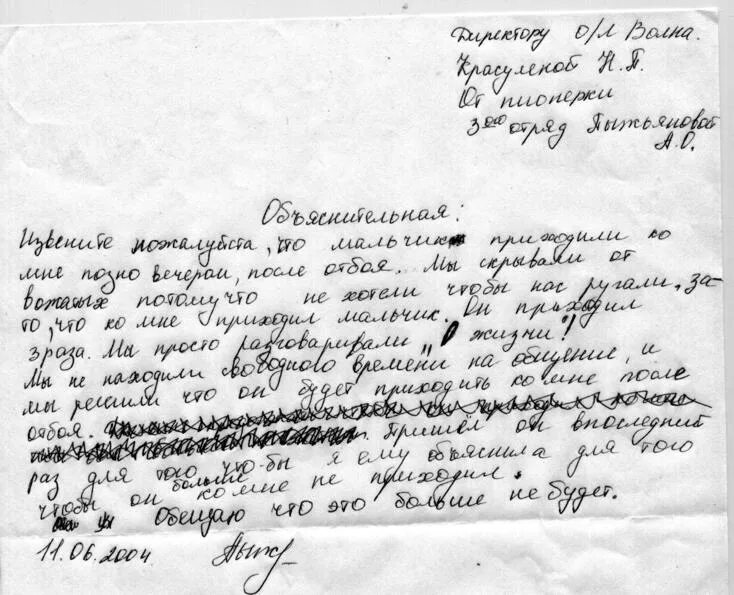 Директору о/л Волна.
Красуленой Н.П.
От пионерки
3ого отряд Пыжьяновой
А.О.
Объяснительная:
Извените пожалуйста, что мальчик приходили ко
мне позно вечером, после отбоя. Мы скрывали от
вожатых потомучто не хотели чтобы нас ругали, за-
то, что ко мне приходил мальчик. Он приходил
3 раза. Мы просто разговаривали „О жизни".
Мы не находили свободного времени на общение, и
мы решили что он будет приходить ко мне после
отбоя. Пришёл он впоследний
раз для того что-бы я ему объяснила для того
чтобы он больше ко мне не приходил.
Обещаю что это больше не будет.
11.06.2004 Пыж